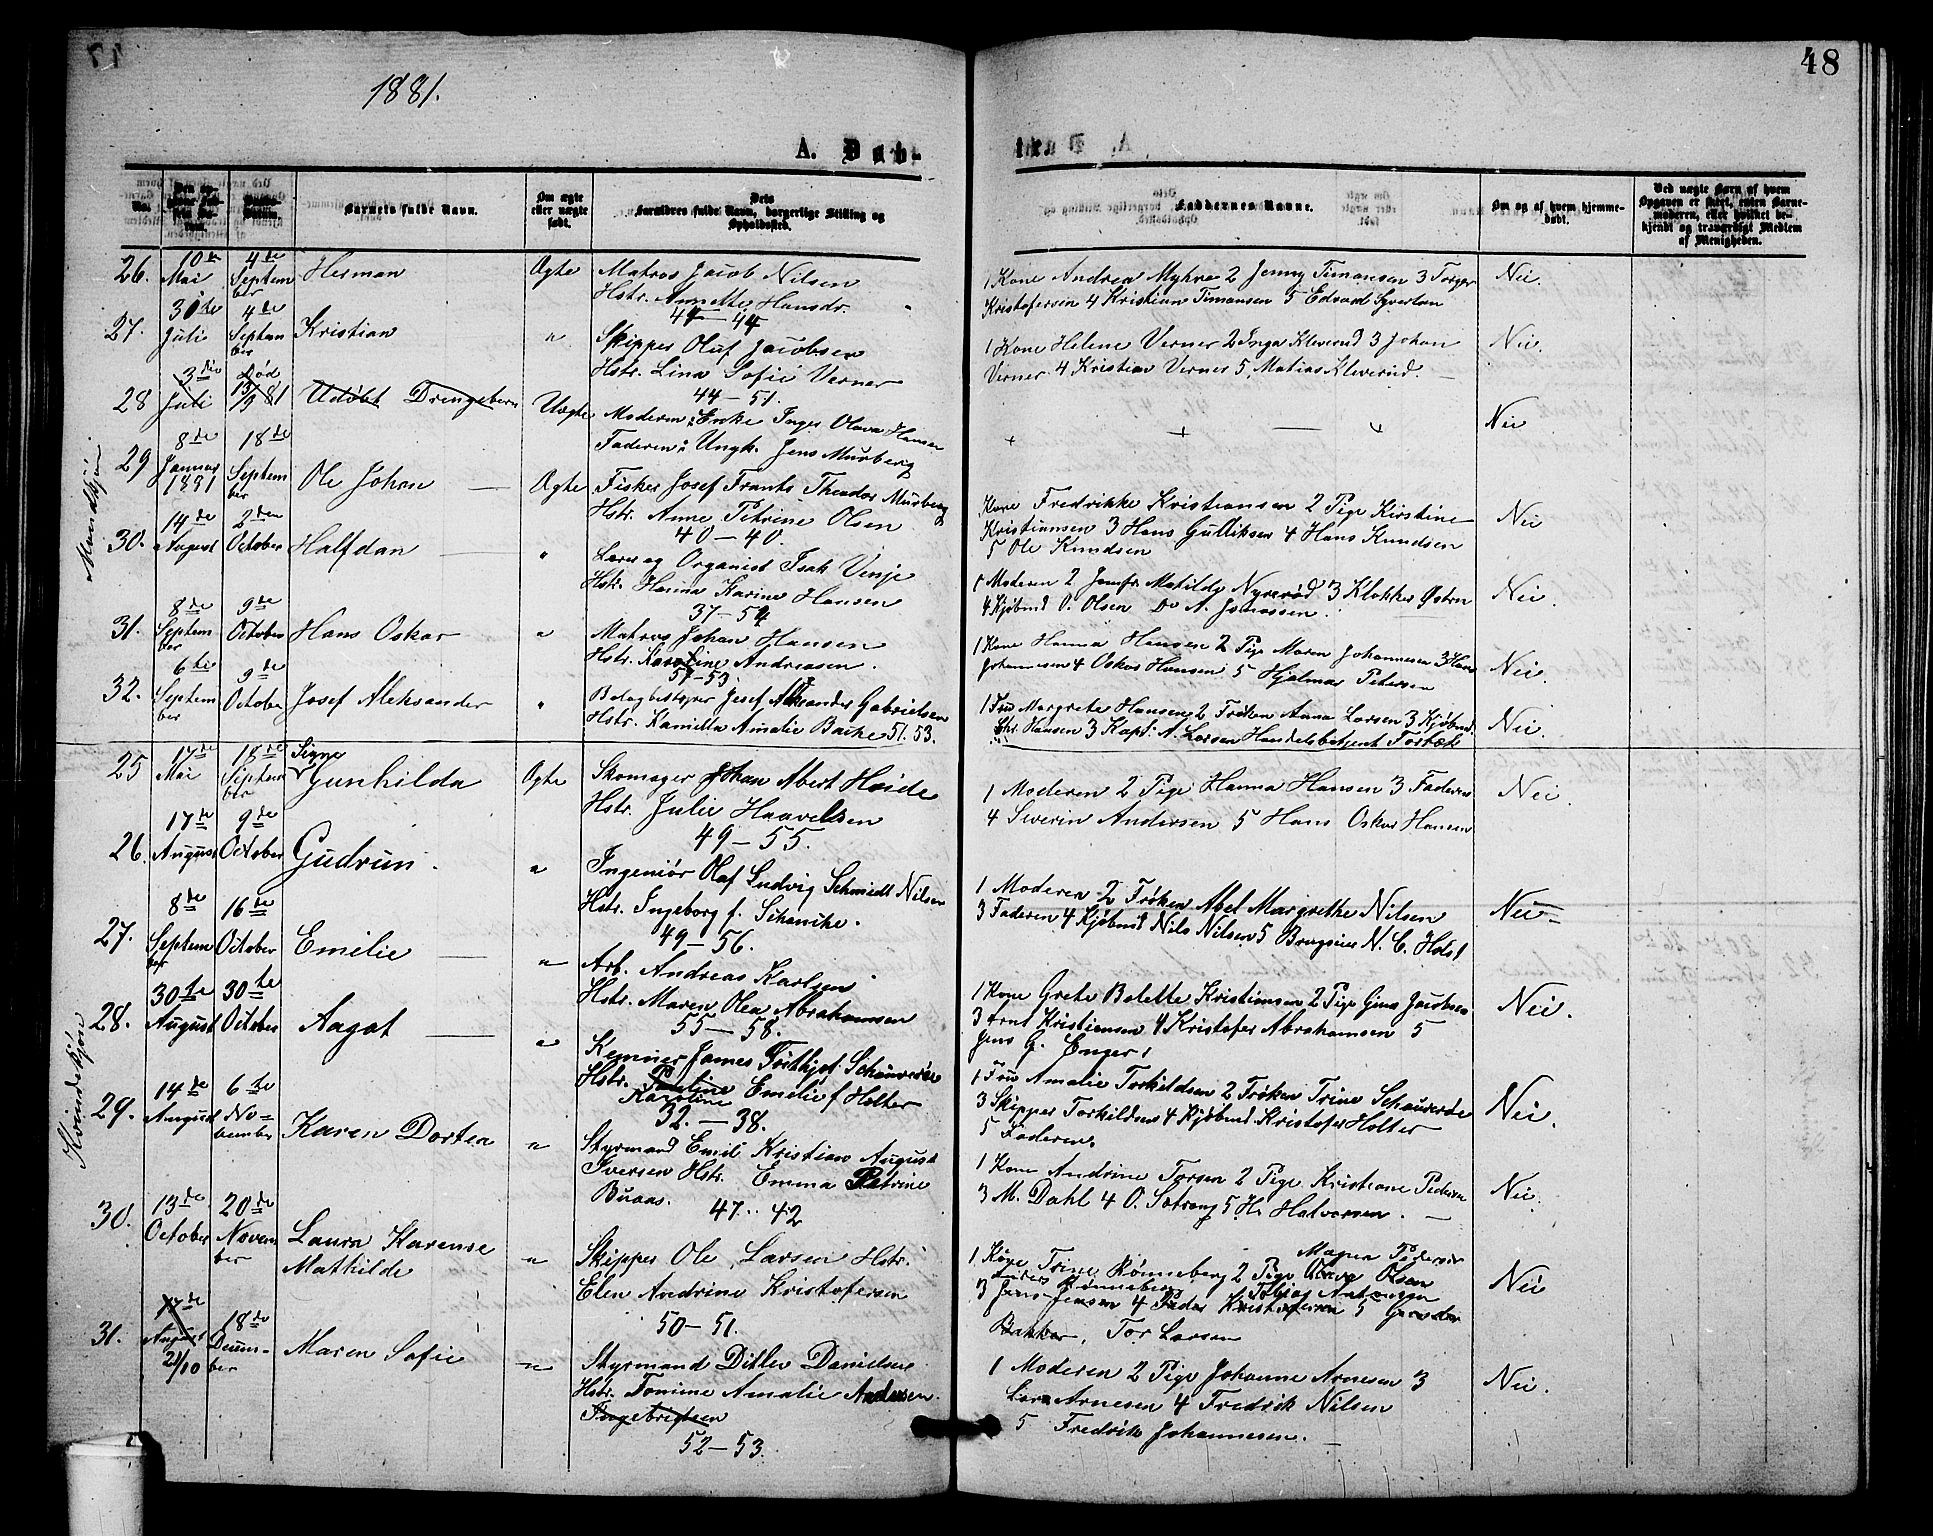 48
1881.
A. Døb-
No.
Barnets fulde Navn.
Om ægte eller uægte født.
Dets Forældres fulde Navn, borgerlige Stilling og Opholdssted.
Faddernes Navne.
Om og af hvem hjemmedøbt.
Ved uægte Børn af hvem Opgaven er skeet, enten Barnemoderen, eller hvilket bekjendt og troværdigt Medlem af Menigheden.
Mandkjøn
26. 10de Mai 4de September Herman Ægte Matros Jacob Nilsen
Hstr. Annette Hansdr.
44 — 44
1 Kone Andrea Myhre 2 Jenny Timansen 3 Torger
Kristofersen 4 Kristian Timansen 5 Edvard Syvertsen
Nei.
27. 30te Juli 4de September Kristian " Skipper Oluf Jacobsen
Hstr. Lina Sofie Verner
44 — 51.
1 Kone Helene Verner 2 Inga Kleverud 3 Johan
Verner 4 Kristian Verner 5, Matias Kleverud. —
Nei.
28 3die Juli Død 13/9 81 Udøbt Drengebarn Uægte Moderen: Enke Inger Olava Hansen
Faderen: Ungk. Jens Murberg
Nei
29 8de Januar 1881 18de September Ole Johan — Ægte Fisker Josef Frants Theodor Murberg
Hstr. Anne Petrine Olsen
40 — 40.
Kone Fredrikke Kristiansen 2 Pige Kirstine
Kristiansen 3 Hans Gulliksen 4 Hans Knudsen
5 Ole Knudsen
Nei
30. 14de August 2den October Halfdan — " Lærer og Organist Isak Venje
Hstr. Hanna Karine Hansen
37 — 54
1 Moderen 2 Jomfr. Matilde Nyrerød 3 Klokker Østrn
4 Kjøbmd O. Olsen Do A. Jonassen.
Nei.
31. 8de September 9de October Hans Oskar " Matros Johan Hansen
Hstr. Karoline Andreasen.
57-53
1 Kone Hanna Hansen 2 Pige Maren Johannesen 3 Hans
Johannesen 4 Oskar Hansen 5 Hjalmar Petersen
Nei.
32. 6te September 9de October Josef Aleksander " Bolagbestyrer Josef Alexander Gabrielsen
Hstr. Kamilla Amalie Backe 51. 53.
1 Fru Margrete Hansen 2 Frøken Anna Larsen 3 Kjøbmd.
Chr. Hansen 3 Kapt. A. Larsen Handelsbetjent Torbæk
Nei.
Kvindekjøn
25 17de Mai 18de September Signe
Gunhilda Ægte Skomager Johan Abert Hoide
Hstr. Julie Haavelsen
49 — 55.
1 Moderen 2 Pige Hanna Hansen 3 Faderen
4 Severin Andersen 5 Hans Oskar Hansen
Nei.
26. 17de August 9de October Gudrun. " Ingeniør Olaf Ludvig Schmidt Nilsen
Hstr. Ingeborg f. Schanche.
49 — 56.
1 Moderen 2 Frøken Abel Margrethe Nilsen
3 Faderen 4 Kjøbmd Nils Nilsen 5 Brugseier N. C. Holst
Nei
27. 8de September 16de October Emilie — " Arb. Andreas Karlsen
Hstr. Maren Olea Abrahamsen
55 — 58.
1 Kone Grete Bolette Kristiansen 2 Pige Gina Jacobsen
3 Arnt Kristiansen 4 Kristofer Abrahamsen 5
Jens G. Enger.
Nei.
28. 30te August 30te October Aagot — " Kemner James Fritthjof Schauverde
Hstr. Pauline Karoline Emelie f Holter
32. — 38.
1 Fru Amalie Torkildsen 2 Frøken Trine Schauverde
3 Skipper Torkildsen 4 Kjøbmd. Kristofer Holter
5 Faderen
Nei.
29. 14de August 6te November Karen Dortea " Styrmand Emil Kristian August
Iversen Hstr. Emma Petrine
Buaas. 47. 42
1 Kone Andrine Torsen 2 Pige Kristiane Pedersen
3 M. Dahl 4 O. Sætrang 5 H. Halvorsen. —
Nei.
30. 13de October 20de November Laura Karense
Mathilde " Skipper Ole Larsen Hstr.
Elen Andrine Kristofersen
50 — 51.
1 Kone Trine Rønneberg 2 Pige Maren Pedersen Olava Olsen
3 Jens Jensen 4 Peder Kristofersen 5
Bakker, Tor Larsen
Nei
31. 17de August 21/10 18de December Maren Sofie " Styrmand Ditlev Danielsen
Hstr. Tomine Amalie Andersen.
Ingebrigtsen
52 — 53.
1 Moderen 2 Pige Johanne Arnesen 3
Lars Arnesen 4 Fredrik Nilsen
5 Fredrik Johannesen. —
Nei.